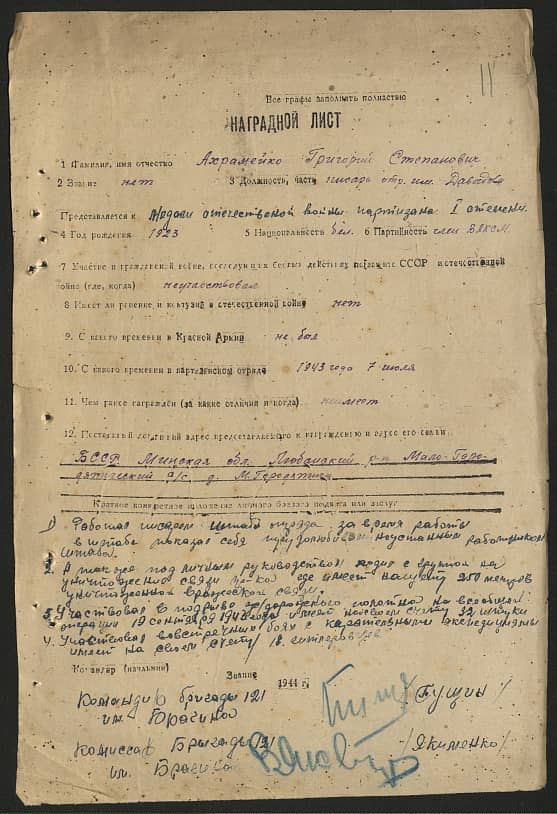 11
Все графы заполнять полностью
НАГРАДНОЙ ЛИСТ
1 Фамилия, имя отчество Ахрамейко Григорий Степанович
2 Звание нет 3 Должность, часть писарь отр. им.
Представляется к Медали отечественой войны партизана I степени
4 Год рождения 1923 5 Национальность бел. 6 Партийность член ВЛКСМ
7 Участие в гражданской войне, последующих боевых действиях по защите СССР и отечественной
войне (где, когда) неучаствовал
8 Имеет ли ранение и контузии в отечественной войне нет
9. С какого времени в Красной Армии не был
10. С какого времени в партизанском отряде 1943 года 7 июля
11. Чем ранее награждён (за какие отличия и когда) неимеет
12. Постоянный домашний адрес представляемого к награждению и адрес его семьи
БССР Минская обл. Любанский р-н Мало-Горо-
дятический с/с д. М. Городятичи
Краткое конкретное изложение личного боевого подвига или заслуг
1) Работая писарем штаба отряда за время работы
в штабе показал себя трудолюбивой неустанным работником
штаба.
2. А также под личным руководством ходил с группой на
уничтожение связи где имеет на щету 250 метров
уничтоженной вражеской связи.
3. Участвовал в подрыве ж/дорожного полотна на
операции 19 сентября 1943 года имеет на своем счету 32 штуки
4. Участвовал во встречных боях с карательными экспедициями
имеет на своем счету гитлеровцев
Командир (начальник)
Звание
1944 г.
Командир бригады 121
им. Брагина
Пущин/
Комиссар Бригады 121
им. Брагина
/Якименко/